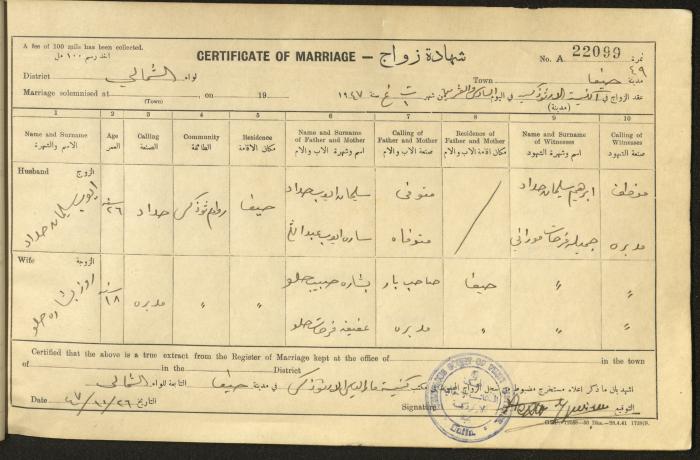 A fee of 100 mils has been collected.
أخذ رسم ١٠٠ مل
CERTIFICATE OF MARRIAGE – شهادة زواج
No. A 22099 نمرة
٤٩
District لواء الشمالي
Town مدينة حيفا
Marriage solemnised at , on 19
(Town)
عقد الزواج في
(مدينة)
في اليوم السادس والعشرين من شهر ت ١ سنة ١٩٤٧
1 2 3 4 5 6 7 8 9 10
Name and Surname الاسم والشهرة
Age العمر
Calling الصنعة
Community الطائفة
Residence مكان الاقامة
Name and Surname of Father and Mother اسم وشهرة الاب والام
Calling of Father and Mother صنعة الاب والام
Residence of Father and Mother مكان اقامة الاب والام
Name and Surname of Witnesses اسم وشهرة الشهود
Calling of Witnesses صنعة الشهود
Husband الزوج
ايوب سليمان حداد
٢٦ سنة
حداد
روم ارثوذكس
حيفا
سليمان ايوب حداد
متوفي
ابرهيم سليمان حداد
موظف
ساره ايوب
متوفاه
جميله فرحات
مدبره
Wife الزوجة
روز بشاره حلو
١٨ سنة
مدبره
"
"
بشاره حبيب حلو
صاحب بار
حيفا
"
"
عفيفه فرحات حلو
مدبره
"
"
"
Certified that the above is a true extract from the Register of Marriage kept at the office of in the town
of in the District
اشهد بان ما ذكر اعلاه مستخرج مضبوط سجل الزواج مكتب كنيسة مار الياس الارثوذكس في مدينة حيفا التابعة للواء الشمالي
Date ٤٧/١١/٢٦ التاريخ
Signature التوقيع